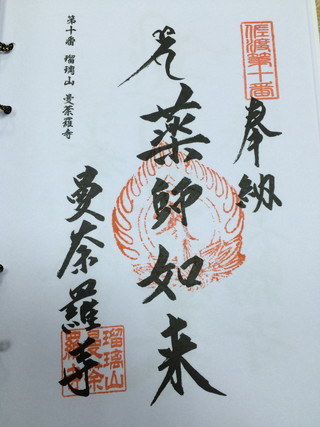 佐渡第十番
奉納
薬師如来
曼荼羅寺
瑠璃山
曼荼
羅寺
第十番 瑠璃山 曼荼羅寺